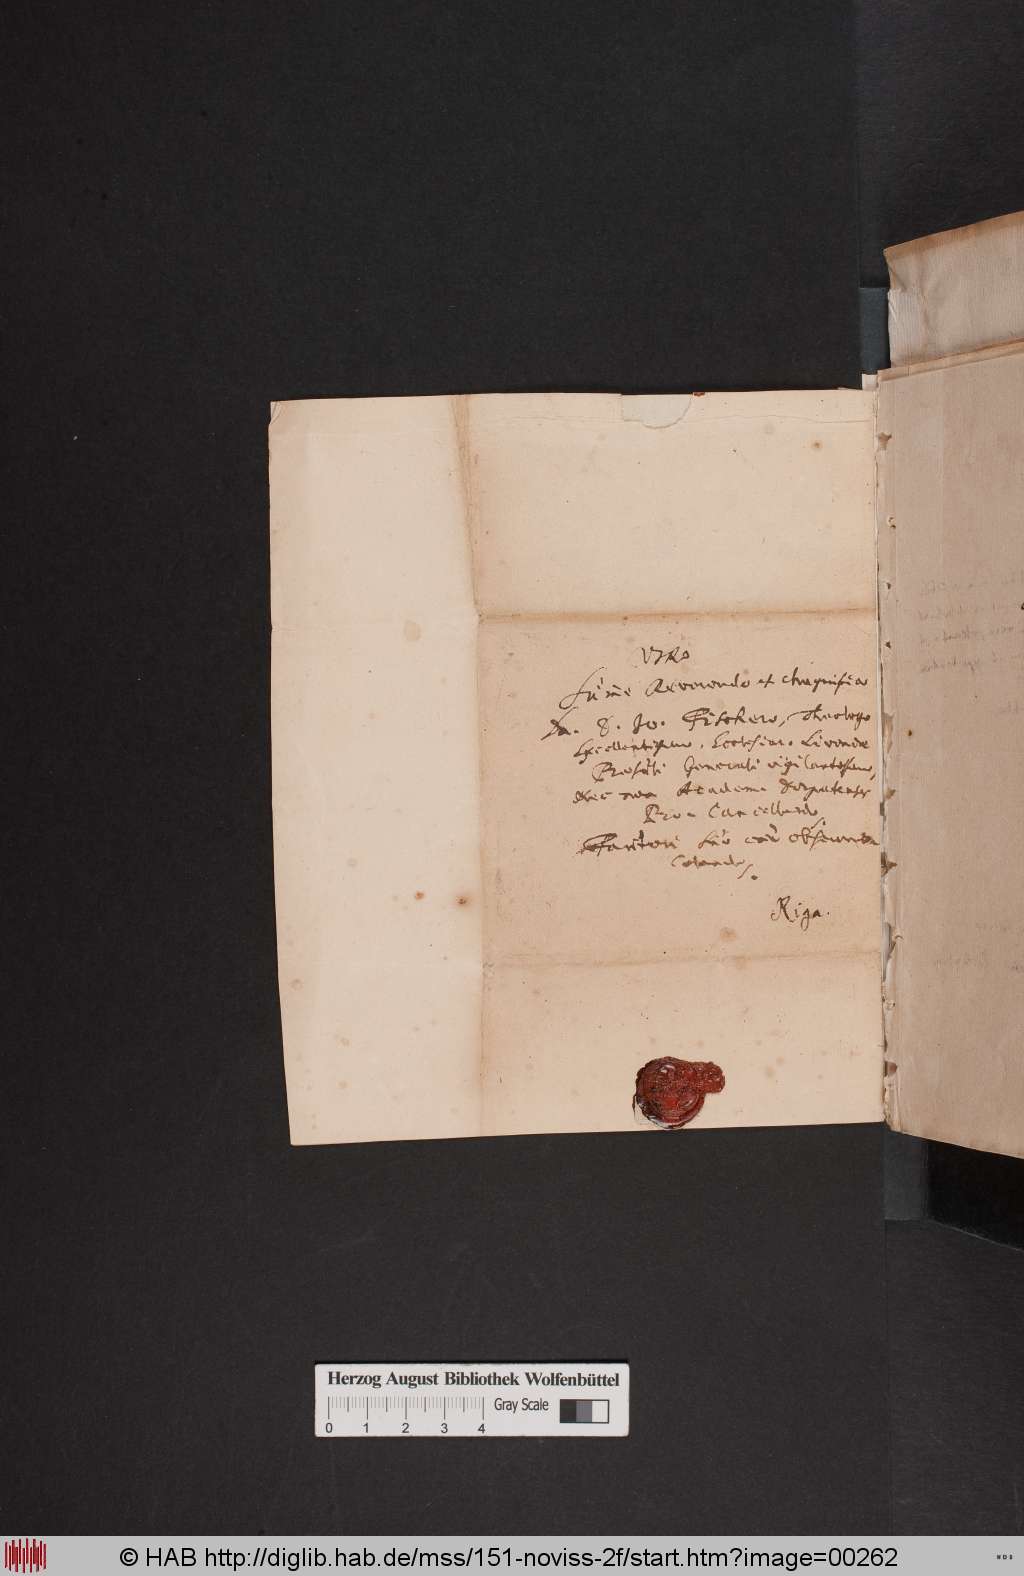 VIRO
Sum̄e Reverendo et Magnifico
Dn. D. Jo. Fischero, Theologo
Excellentissimo, Ecclesiar. Livoniae
Praesuli Generali vigilantissimo,
nec non Academ. Dorpatensis
Pro-Cancellario,
Fautori suo cum observantia
colendo.
Riga.
Herzog August Bibliothek Wolfenbüttel
Gray Scale
0 1 2 3 4
© HAB http://diglib.hab.de/mss/151-noviss-2f/start.htm?image=00262